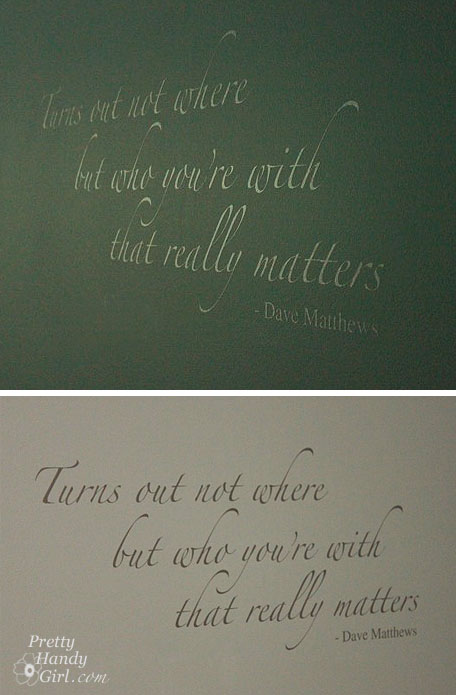 Turns out not where
but who you're with
that really matters
- Dave Matthews
Turns out not where
but who you're with
that really matters
- Dave Matthews
Pretty
Handy
Girl.com